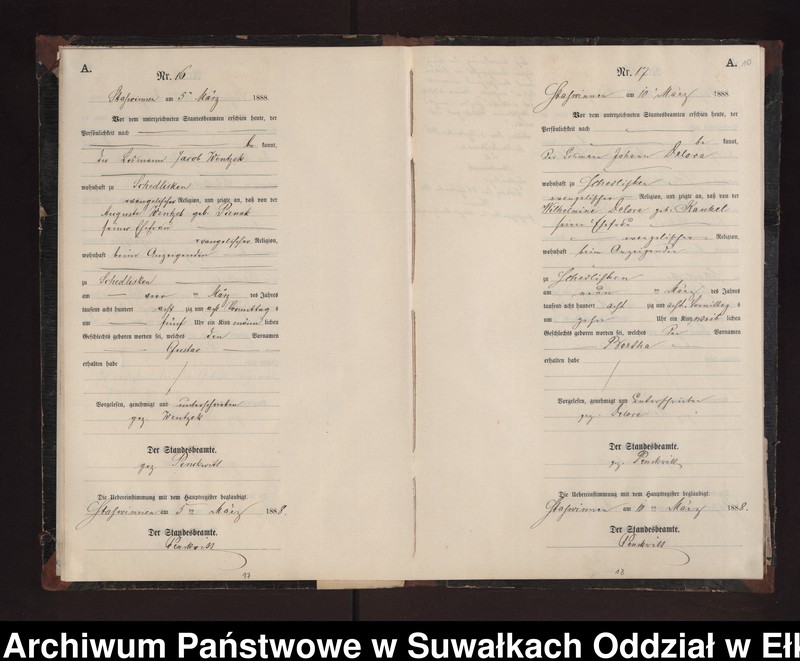 A.
Nr. 16
Staßwinnen am 5ten März 1888.
Vor dem unterzeichneten Standesbeamten erschien heute, der
Persönlichkeit nach
be kannt,
der Losmann Jacob Wentzek
wohnhaft zu Schedlisken
evangelischer Religion, und zeigte an, daß von der
Auguste Wentzek geb.
seiner Ehefrau
evangelischer Religion,
wohnhaft beim Anzeigenden
zu Schedlisken
am vier ten März des Jahres
tausend acht hundert acht zig und acht Vormittag s
um fünf Uhr ein Kind männ lichen
Geschlechts geboren worden sei, welches den Vornamen
Gustav
erhalten habe
Vorgelesen, genehmigt und unterschrieben
gez. Wentzek
Der Standesbeamte.
gez Penckwitt
Die Uebereinstimmung mit dem Hauptregister beglaubigt.
Staßwinnen am 5ten März 1888.
Der Standesbeamte.
Penckwitt
17
A. 10
Nr. 17
Staßwinnen am 10ten März 1888
Vor dem unterzeichneten Standesbeamten erschien heute, der
Persönlichkeit nach
be kannt,
Der Losmann Johann
wohnhaft zu Schedlisken
evangelischer Religion, und zeigte an, daß von der
Wilhelmine geb. Kankel
seiner Ehefrau
evangelischer Religion,
wohnhaft beim Anzeigenden
zu Schedlisken
am neun ten März des Jahres
tausend acht hundert acht zig und acht Vormittag s
um zehn Uhr ein Kind weib lichen
Geschlechts geboren worden sei, welches Den Vornamen
Bertha
erhalten habe
Vorgelesen, genehmigt und Unterschrieben
gez.
Der Standesbeamte.
gz. Penckwitt
Die Uebereinstimmung mit dem Hauptregister beglaubigt.
Staßwinnen am 10ten März 1888.
Der Standesbeamte.
Penckwitt
18
Archiwum Państwowe w Suwałkach Oddział w Ełk